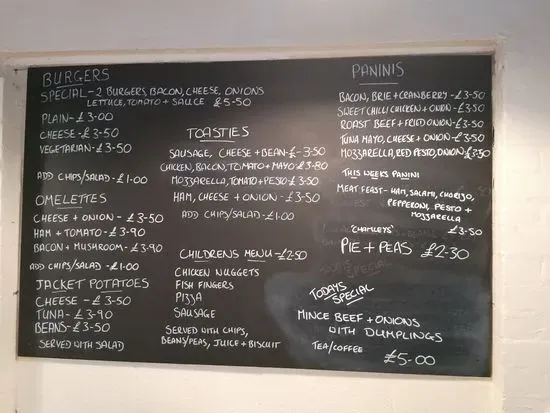 BURGERS
SPECIAL - 2 BURGERS, BACON, CHEESE, ONIONS
LETTUCE, TOMATO + SAUCE £5-50
PLAIN - £3-00
CHEESE - £3-50
VEGETARIAN - £3-50
ADD CHIPS/SALAD - £1-00
OMELETTES
CHEESE + ONION - £3-50
HAM + TOMATO - £3-90
BACON + MUSHROOM - £3-90
ADD CHIPS/SALAD - £1-00
JACKET POTATOES
CHEESE - £3-50
TUNA - £3-90
BEANS - £3-50
SERVED WITH SALAD
TOASTIES
SAUSAGE, CHEESE + BEAN - £-3-50
CHICKEN, BACON, TOMATO + MAYO £3-80
MOZZARELLA, TOMATO + PESTO £3-50
HAM, CHEESE + ONION - £3-50
ADD CHIPS/SALAD - £1-00
CHILDRENS MENU - £2-50
CHICKEN NUGGETS
FISH FINGERS
PIZZA
SAUSAGE
SERVED WITH CHIPS,
BEANS/PEAS, JUICE + BISCUIT
PANINIS
BACON, BRIE + CRANBERRY - £3-50
SWEET CHILLI CHICKEN + ONION - £3-50
ROAST BEEF + FRIED ONION - £3-50
TUNA MAYO, CHEESE + ONION - £3-50
MOZZARELLA, RED PESTO, ONION £3-50
THIS WEEKS PANINI
MEAT FEAST - HAM, SALAMI, CHORIZO,
PEPPERONI, PESTO +
MOZZARELLA
£3-50
PIE + PEAS £2-30
TODAYS
SPECIAL
MINCE BEEF + ONIONS
WITH DUMPLINGS
TEA/COFFEE
£5-00